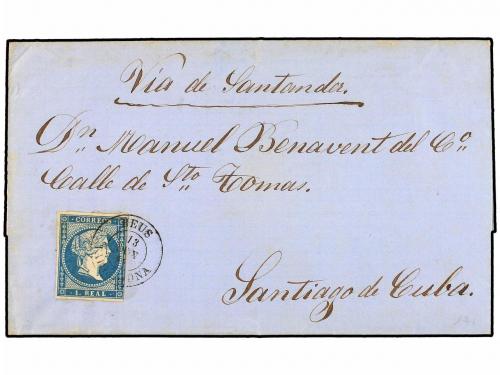 Via de Santander.
Dn. Manuel Benavent del Co.
Calle de Sto Tomas.
CORREOS
1. REAL
REUS
13
ONA
Santiago de Cuba.